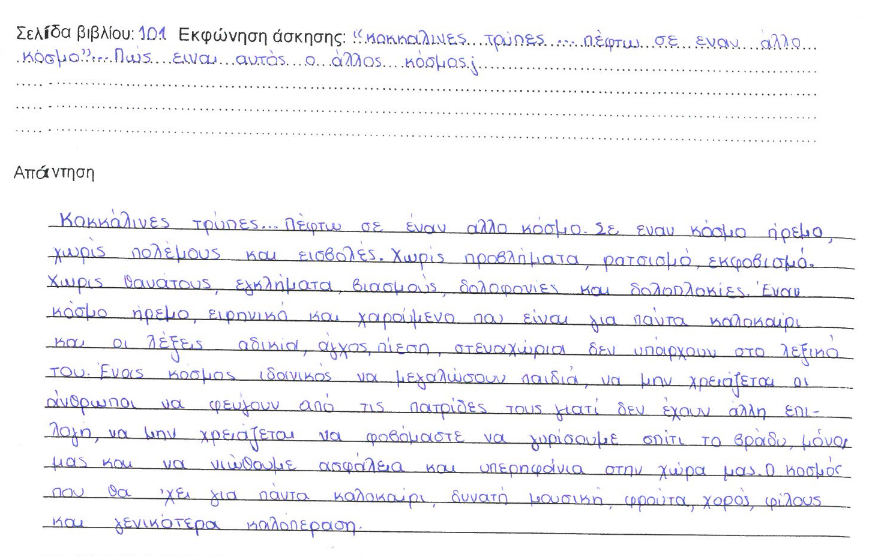 Σελίδα βιβλίου: 101 Εκφώνηση άσκησης: "κοκκάλινες τρύπες ... πέφτω σε εναν άλλο
κόσμο"... Πώς ειναι αυτός ο άλλος κόσμος;
Απάντηση
Κοκκάλινες τρύπες... Πέφτω σε έναν αλλο κόσμο. Σε εναν κόσμο ήρεμο,
χωρίς πολέμους και εισβολές. Χωρίς προβλήματα, ρατσισμό, εκφοβισμό.
Χωρις θανάτους, εγκλήματα, βιασμούς, δολοφονιες και δολοπλοκίες. Έναν
κόσμο ήρεμο, ειρηνικό και χαρούμενο που είναι για πάντα καλοκαίρι
και οι λέξεις αδικία, άγχος, πίεση, στεναχώρια δεν υπάρχουν στο λεξικό
του. Ένας κόσμος ιδανικός να μεγαλώσουν παιδιά, να μην χρειάζεται οι
άνθρωποι να φεύγουν από τις πατρίδες τους γιατί δεν έχουν άλλη επι-
λογη, να μην χρειάζεται να φοβόμαστε να γυρίσουμε σπίτι το βράδυ, μόνοι
μας και να νιώθουμε ασφάλεια και υπερηφάνια στην χώρα μας. Ο κοσμός
που θα 'χει για πάντα καλοκαίρι, δυνατή μουσική, φρούτα, χορός, φίλους
και γενικότερα καλοπέραση.